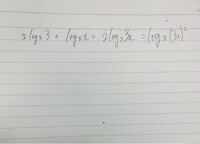 2log₂3 + log₂x = 2log₂3x = log₂(3x)²